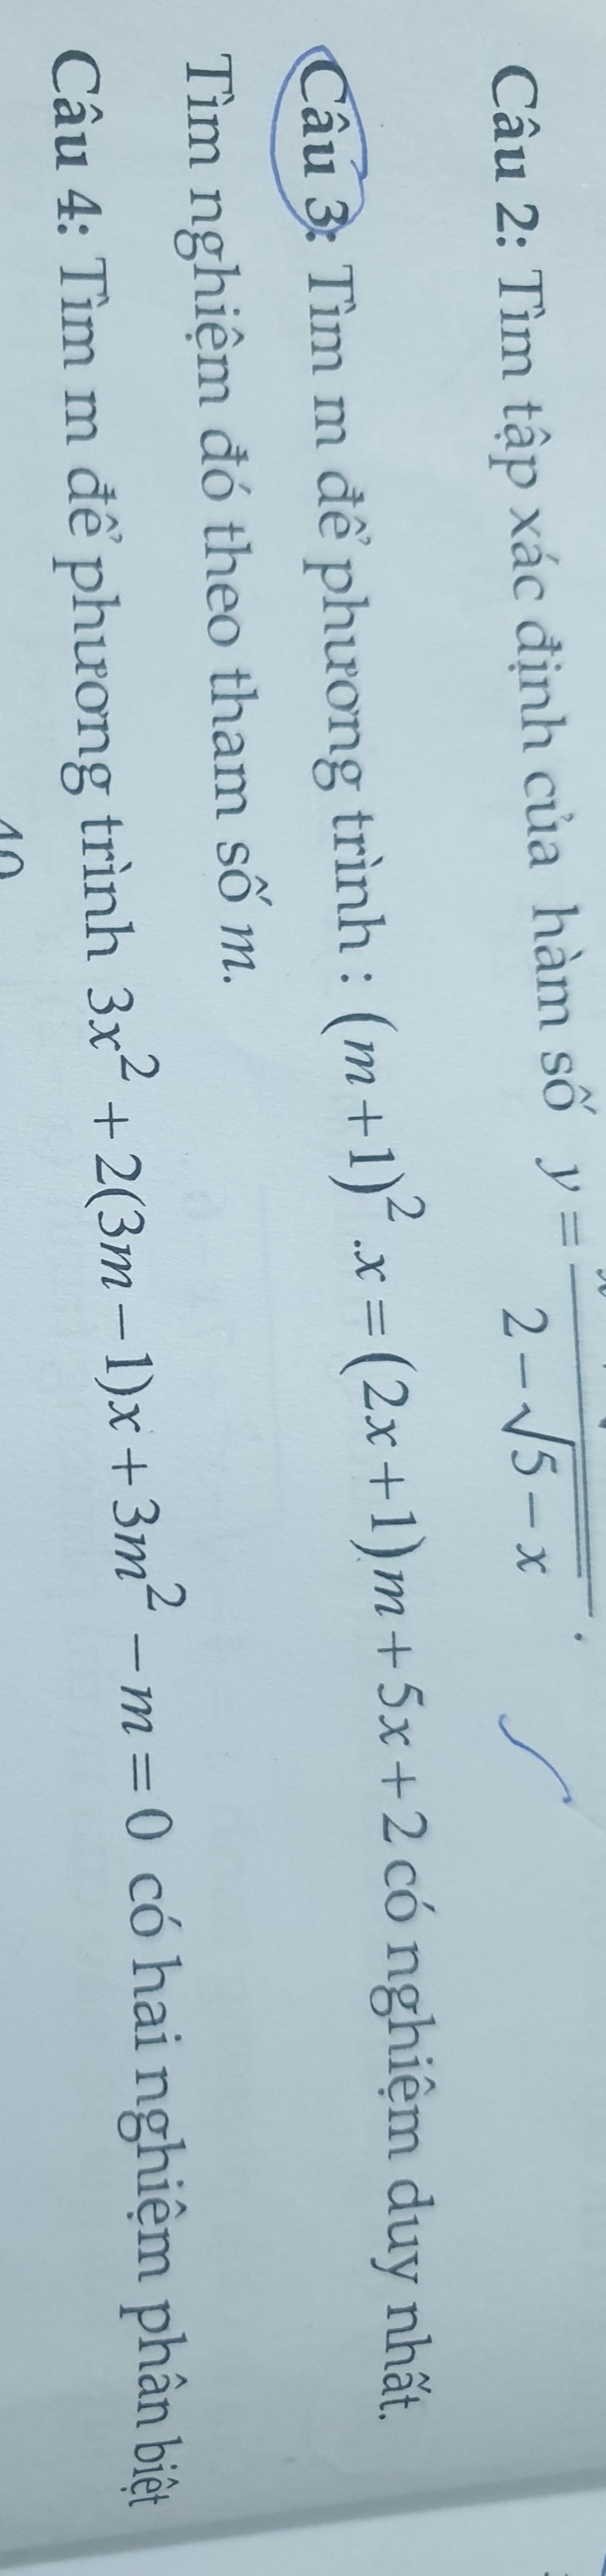 Câu 2: Tìm tập xác định của hàm số y = / (2 − √(5 − x)).
Câu 3: Tìm m để phương trình : (m + 1)² .x = (2x + 1)m + 5x + 2 có nghiệm duy nhất.
Tìm nghiệm đó theo tham số m.
Câu 4: Tìm m để phương trình 3x² + 2(3m − 1)x + 3m² − m = 0 có hai nghiệm phân biệt